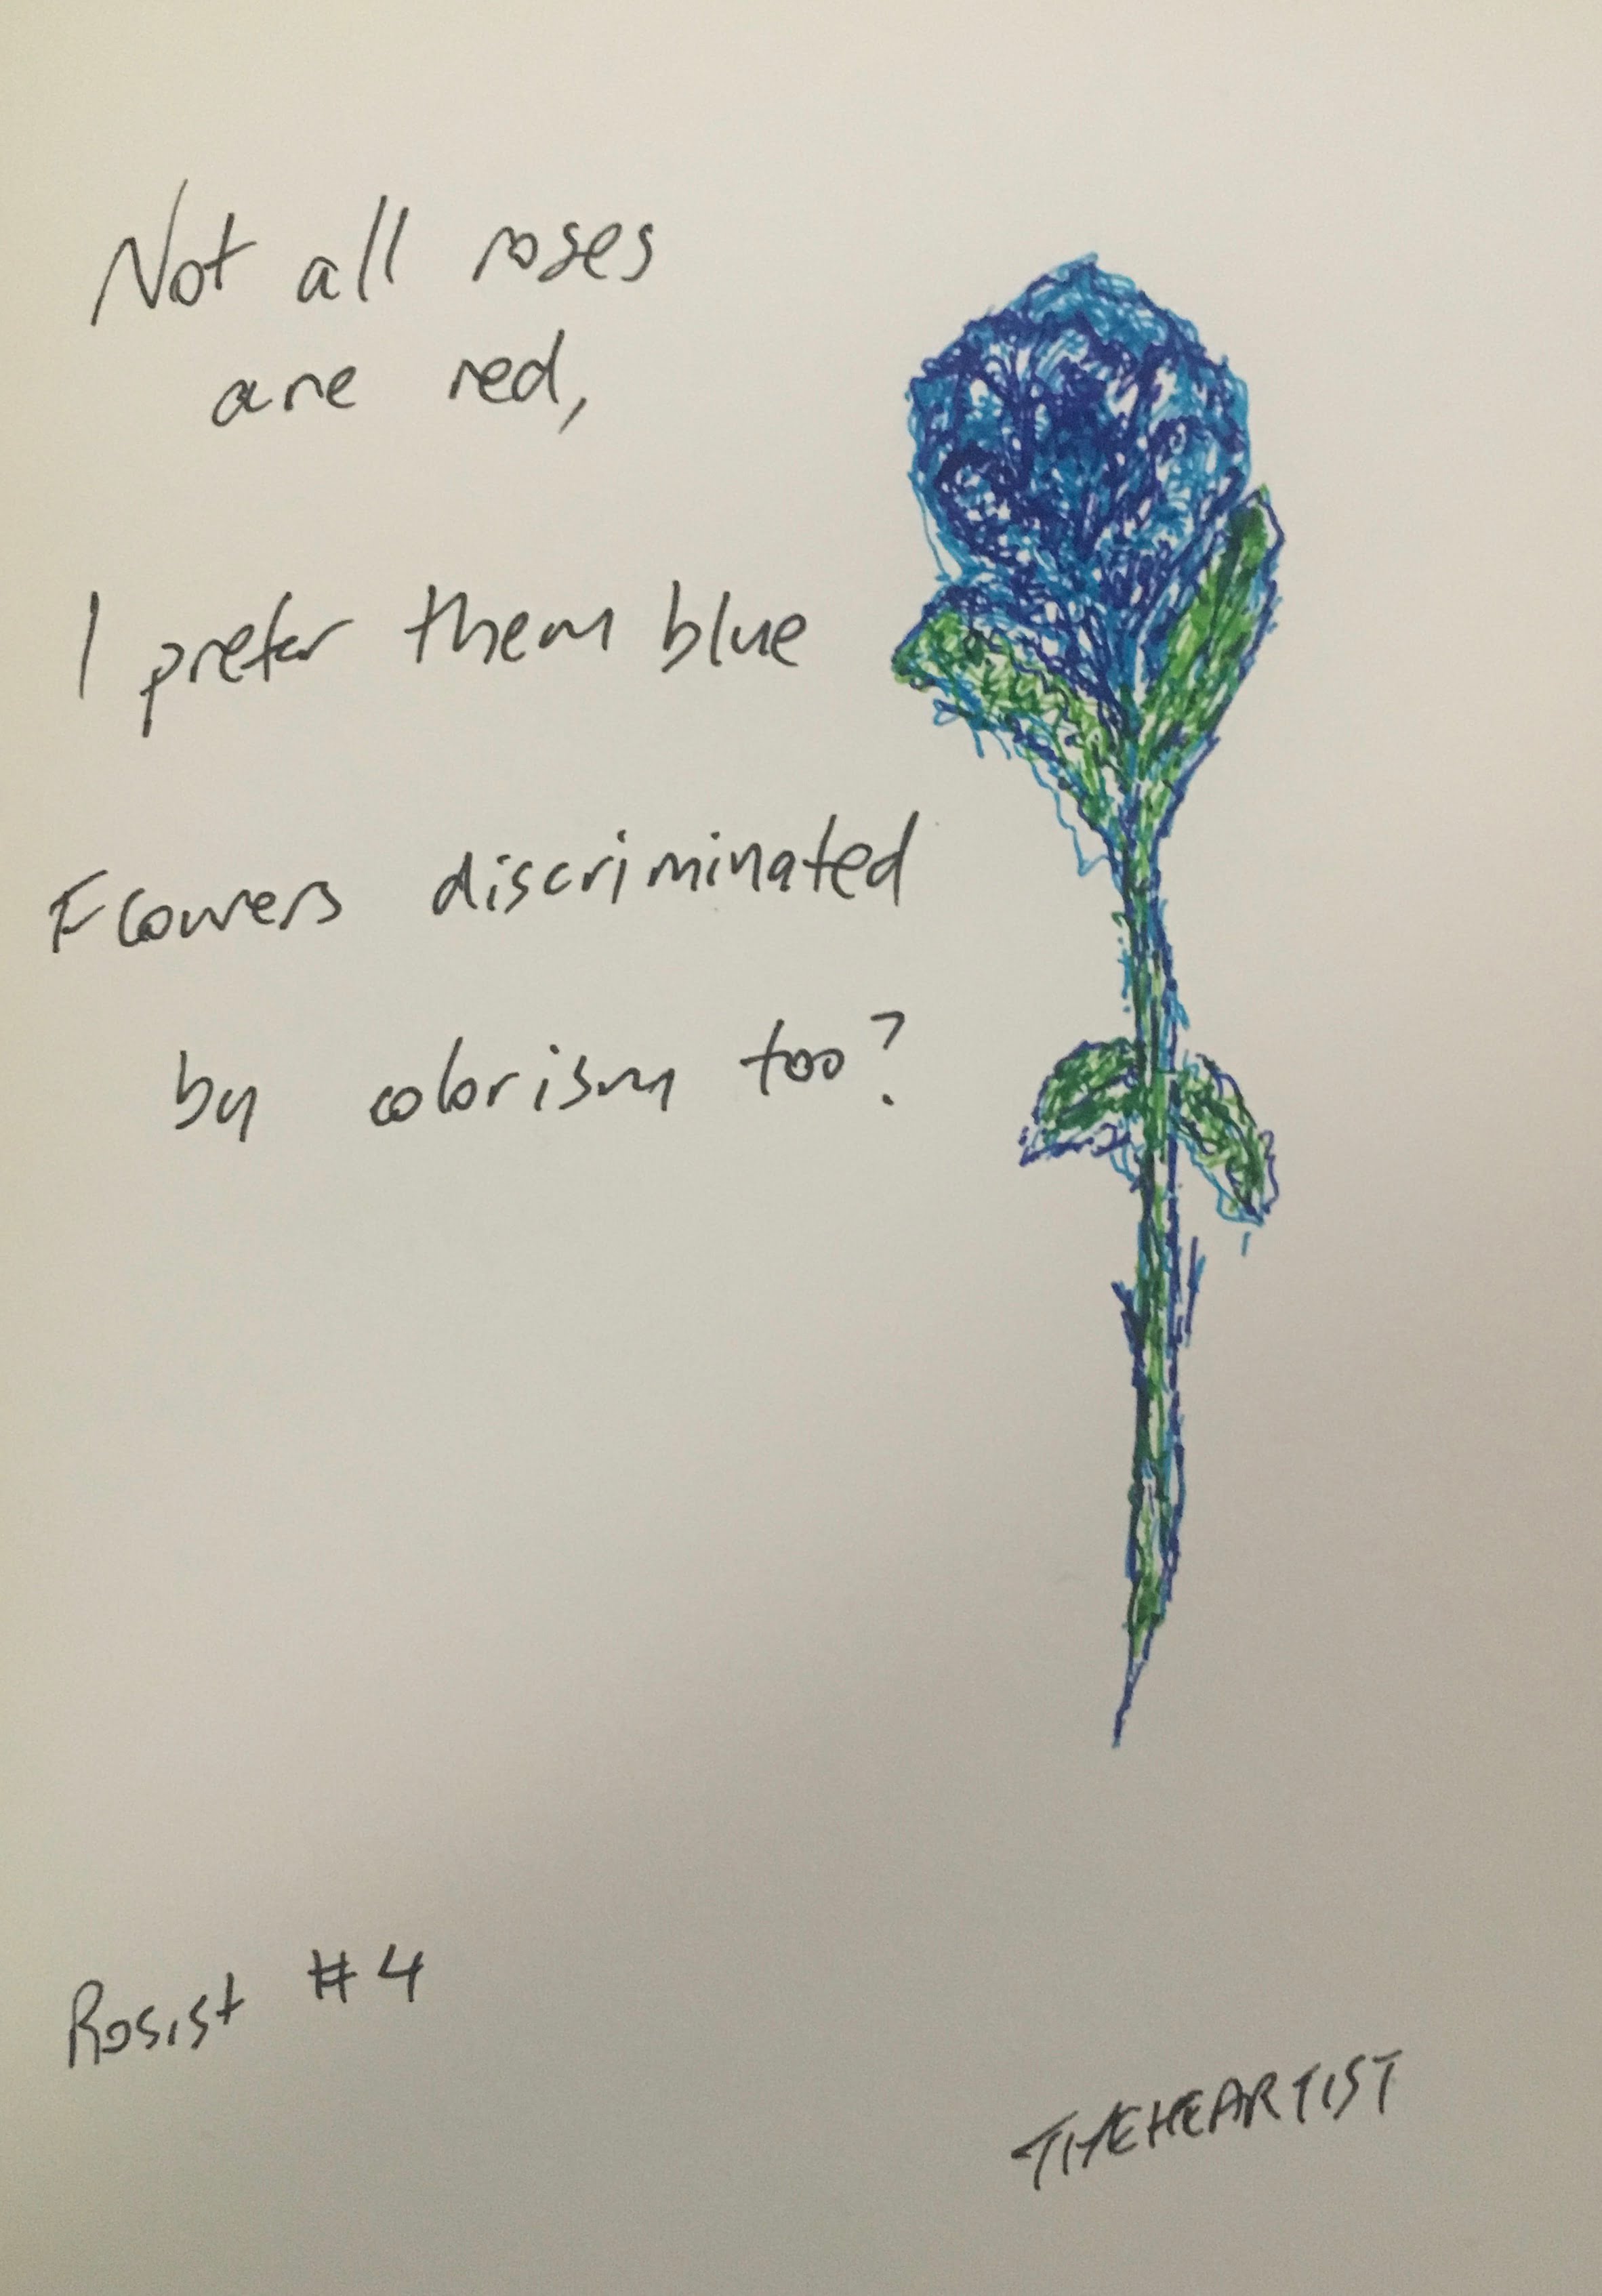 Not all roses
are red,
I prefer them blue
Flowers discriminated
by colorism too?
Rosist #4
THEHEARTIST